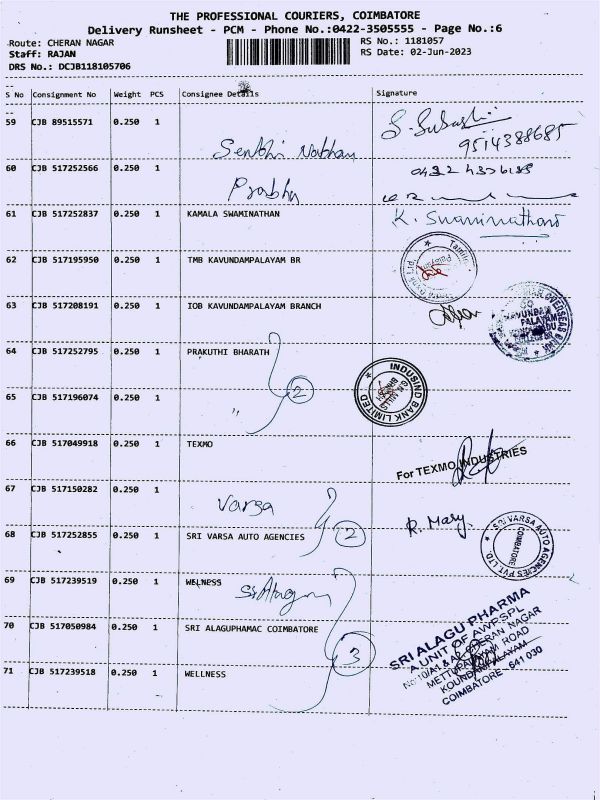 THE PROFESSIONAL COURIERS, COIMBATORE
Delivery Runsheet - PCM - Phone No.:0422-3505555 - Page No.:6
Route: CHERAN NAGAR
RS No.: 1181057
Staff: RAJAN
RS Date: 02-Jun-2023
DRS No.: DCJB118105706
S No Consignment No Weight PCS Consignee Details Signature
59 CJB 89515571 0.250 1
S. Subash
9514388685
Senthi Nathan
60 CJB 517252566 0.250 1
Prabhu
61 CJB 517252837 0.250 1 KAMALA SWAMINATHAN K. Swaminathan
62 CJB 517195950 0.250 1 TMB KAVUNDAMPALAYAM BR
63 CJB 517208191 0.250 1 IOB KAVUNDAMPALAYAM BRANCH
64 CJB 517252795 0.250 1 PRAKUTHI BHARATH
INDUSIND BANK LIMITED
65 CJB 517196074 0.250 1 " 2
66 CJB 517049918 0.250 1 TEXMO
For TEXMO INDUSTRIES
67 CJB 517150282 0.250 1 Varsa
R. Mary
68 CJB 517252855 0.250 1 SRI VARSA AUTO AGENCIES 2
SRI VARSA AUTO AGENCIES PVT LTD
COIMBATORE
69 CJB 517239519 0.250 1 WELNESS
Sri Alagu
70 CJB 517050984 0.250 1 SRI ALAGUPHAMAC COIMBATORE
3
SRI ALAGU PHARMA
A UNIT OF AWPSPL
CHERAN NAGAR
METTUPALAYAM ROAD
KOUNDAMPALAYAM
COIMBATORE - 641 030
71 CJB 517239518 0.250 1 WELLNESS